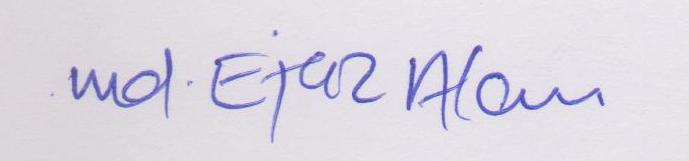 md. Ejaz Alam